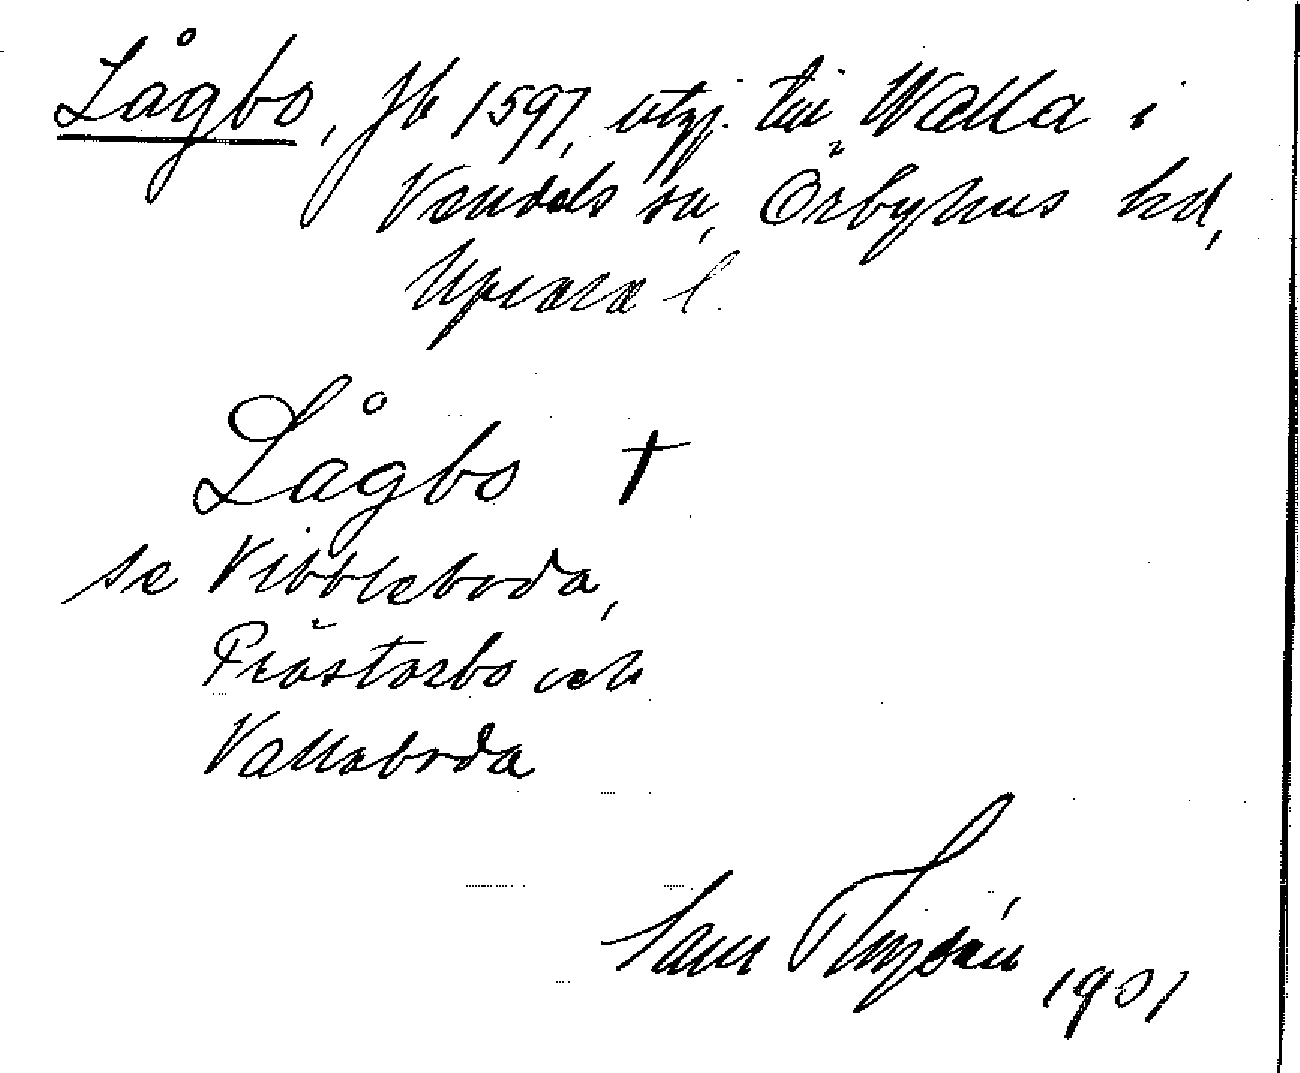 Lågbo, Jb 1597, utgj. till Walla i
Vendels sn, Örbyhus hd,
Upsala l.
Lågbo †
se Vibbleboda,
Prästorbo och
Vallaboda
Sam 1901